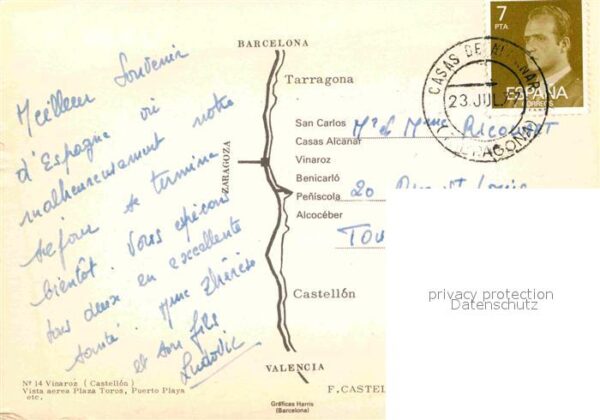 Meilleur Souvenir
d'Espagne où
malheureusement notre
séjour se termine
bientôt. Vous espérons
tous deux en excellente
santé. Mme Thérèse
et son fils
Ludovic
Nº 14 Vinaroz (Castellón)
Vista aerea Plaza Toros, Puerto Playa
etc.
BARCELONA
Tarragona
San Carlos
Casas Alcanar
Vinaroz
Benicarló
Peñíscola
Alcocéber
ZARAGOZA
Castellón
VALENCIA
F. CASTEL
Gráficas Harris
(Barcelona)
7
PTA
ESPAÑA
CORREOS
CASAS DE ALCANAR
23 JUL 77
(TARRAGONA)
Mr et Mme
20 Rue St Louis
privacy protection
Datenschutz